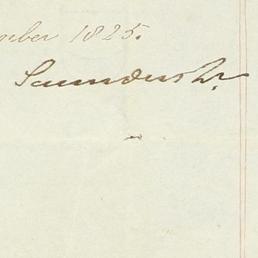 mber 1825.
Saunders W.